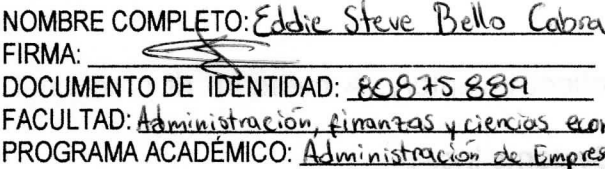 NOMBRE COMPLETO: Eddie Steve Bello Cabra
FIRMA:
DOCUMENTO DE IDENTIDAD: 80875889
FACULTAD: Administración, finanzas y ciencias econ
PROGRAMA ACADÉMICO: Administración de Empres